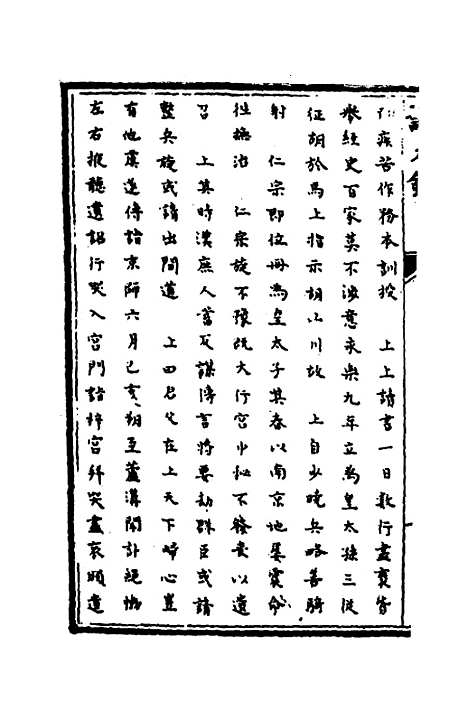 疾苦作務本訓授　上上讀書一日數行盡褒皆
經史百家莫不涉意永樂九年立為皇太孫三從
征胡於馬上指示胡山川故　上自少曉兵略善騎
射　仁宗即位冊為皇太子其春以南京地屢震命
往撫治　仁宗旋不豫旣大行宮中秘不發喪以遺
召　上其時漢庶人蓄反謀傳言將要劫賊臣或請
整兵旋或請出間道　上曰君父在上天下歸心豈
有他虞遂傳詣京師六月已亥朔至蘆溝聞訃絕慟
左右掖聽遺詔行哭入宮門詣梓宮拜哭盡哀頒遺